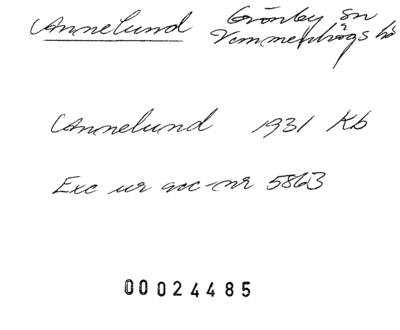 Annelund Grönby sn
Vemmenhögs hd
Annelund 1931 Kb
Exc ur acc-nr 5863
00024485